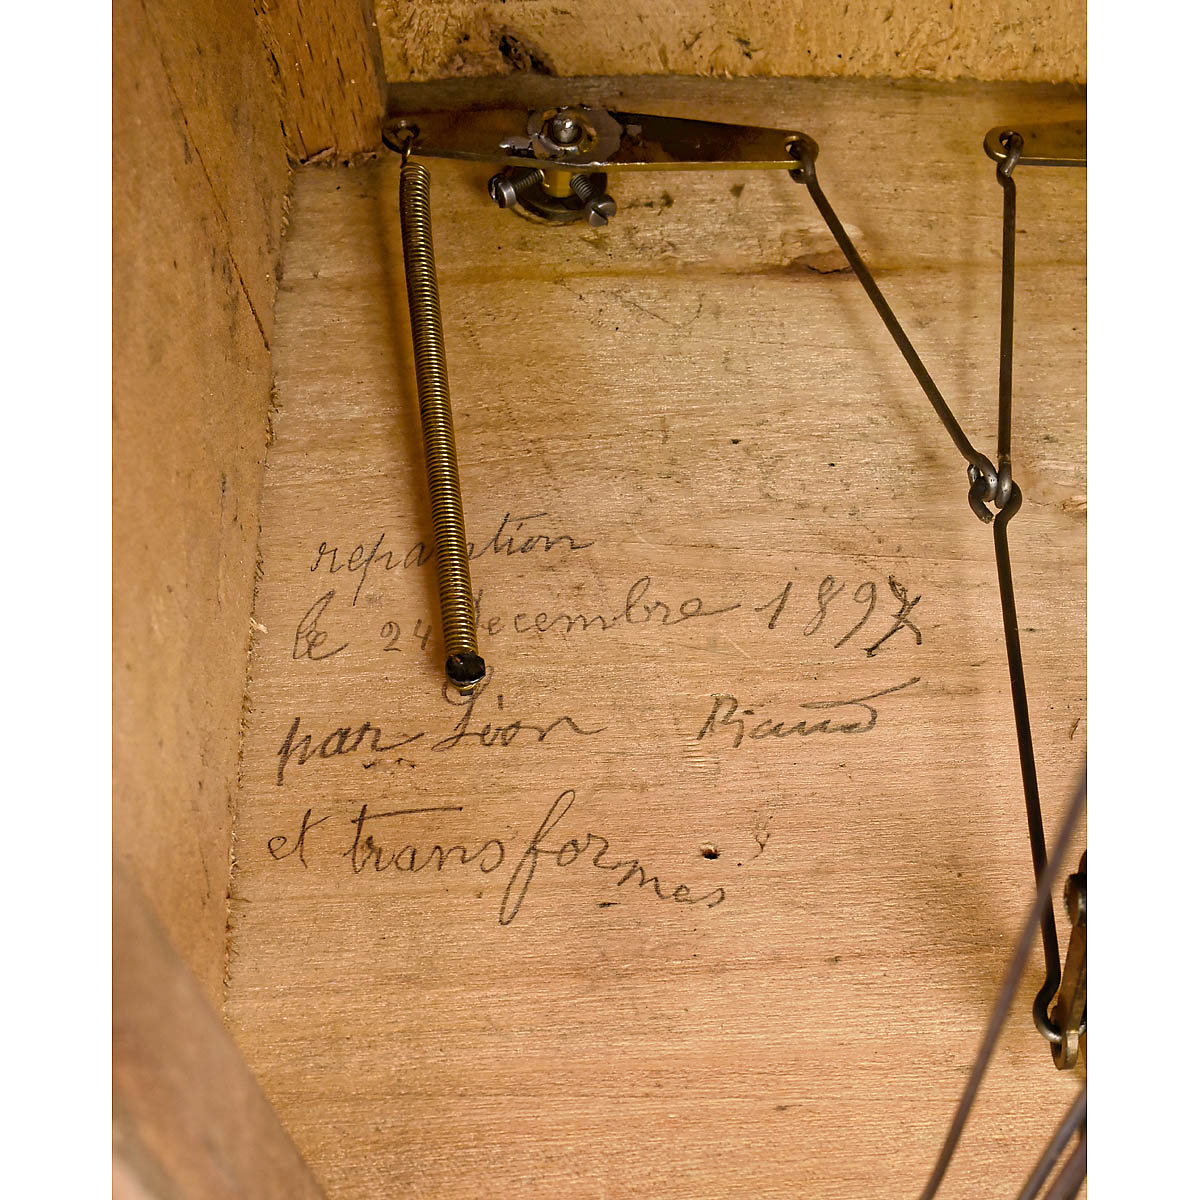 reparation
le 24 decembre 1897
par Léon Riaud
et transformes